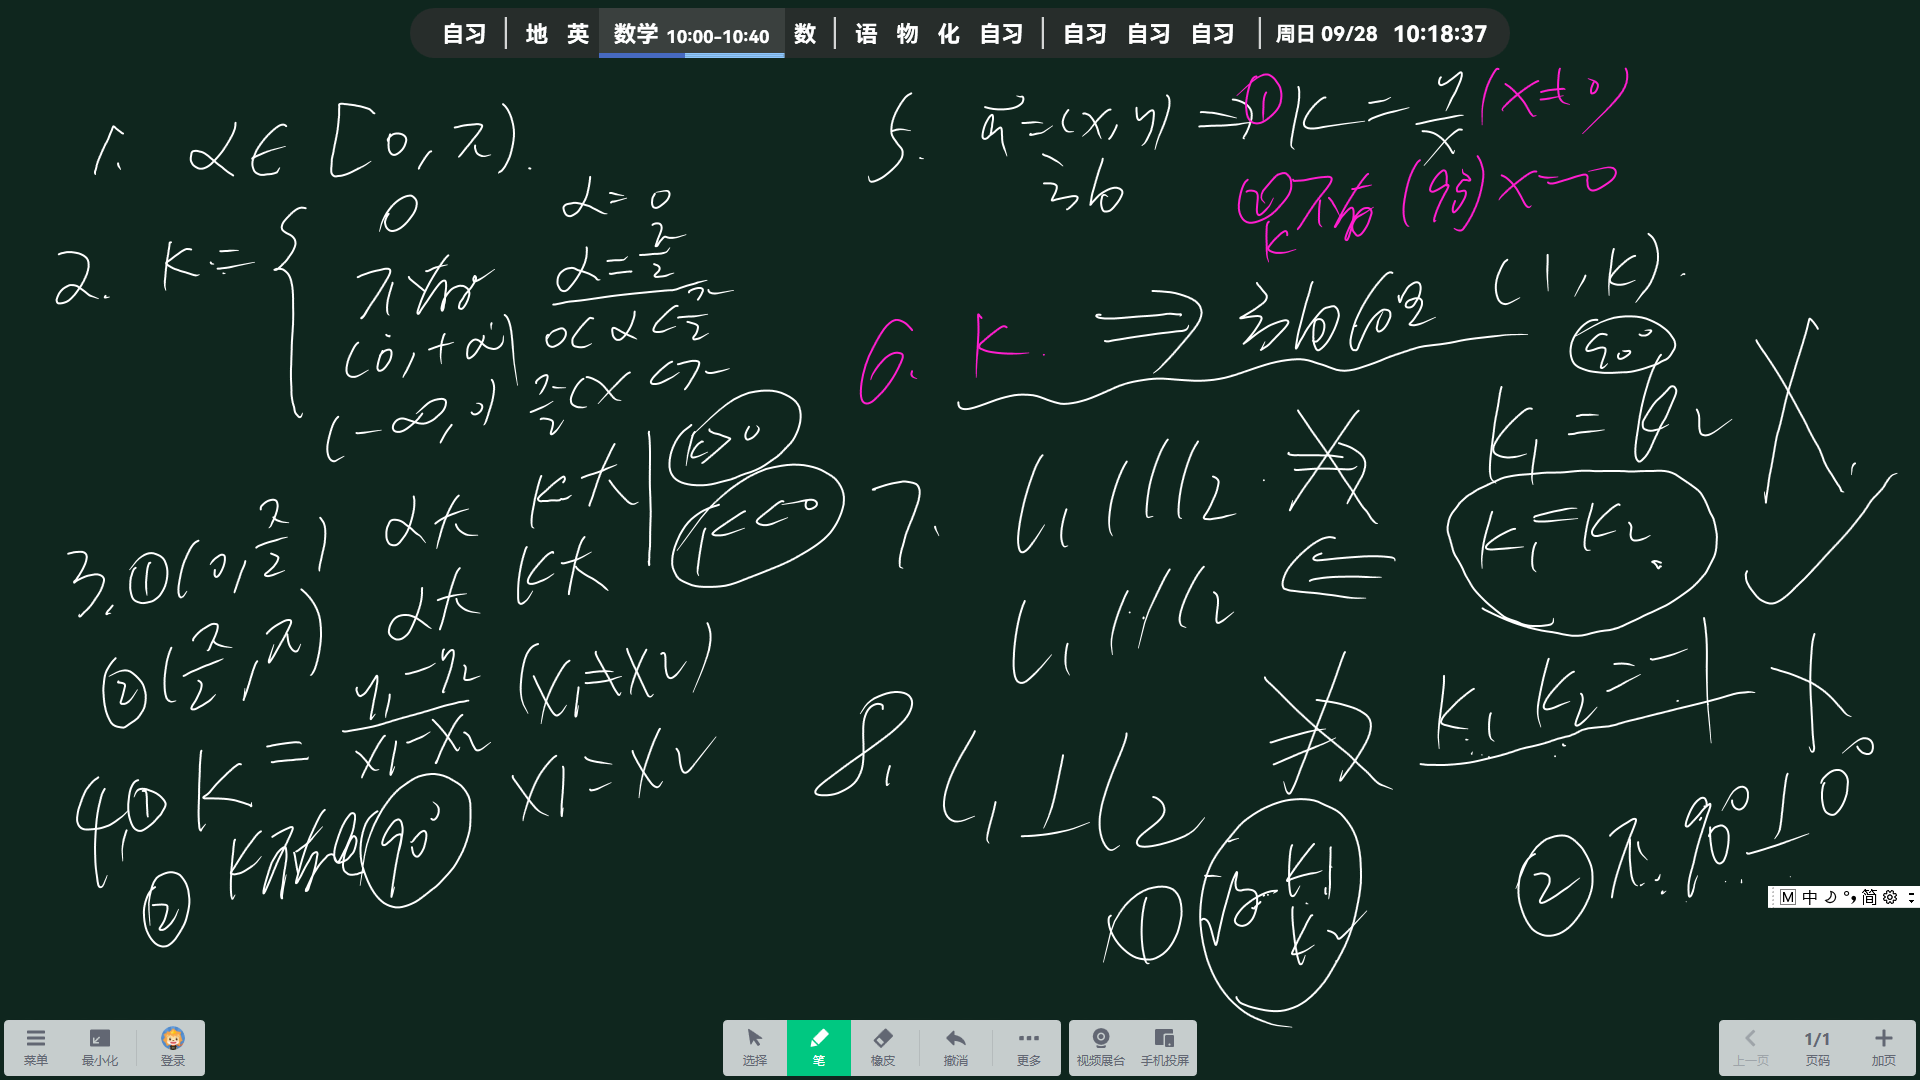 自习 | 地 英 数学 10:00-10:40 数 | 语 物 化 自习 | 自习 自习 自习 | 周日 09/28 10:18:37
1. α∈[0,π).
2. k= { 0 α=0
不存在 α=π/2
(0,+∞) 0<α<π/2
(-∞,0) π/2<α<π
3. ①(0,π/2) α大 k大 | k>0
②(π/2,π) α大 k大 | k<0
4. ① k=(y₁-y₂)/(x₁-x₂) (x₁≠x₂)
② k不存在(90° x₁=x₂
5. a=(x,y) ⇒ ① k=y/x (x≠0)
方向
② k不存在(90°) x=0
6. k. ⇒ 方向向量 (1,k).
90°
7. l₁∥l₂ ⇒ k₁=k₂ ×
l₁∥l₂ ⇐ k₁=k₂. ✓
8. l₁⊥l₂ ⇒ k₁k₂=-1 ×
① k₁ k₂
② 不. 90°⊥0°
M 中 简
菜单 最小化 登录
选择 笔 橡皮 撤消 更多
视频展台 手机投屏
上一页 1/1 页码 加页